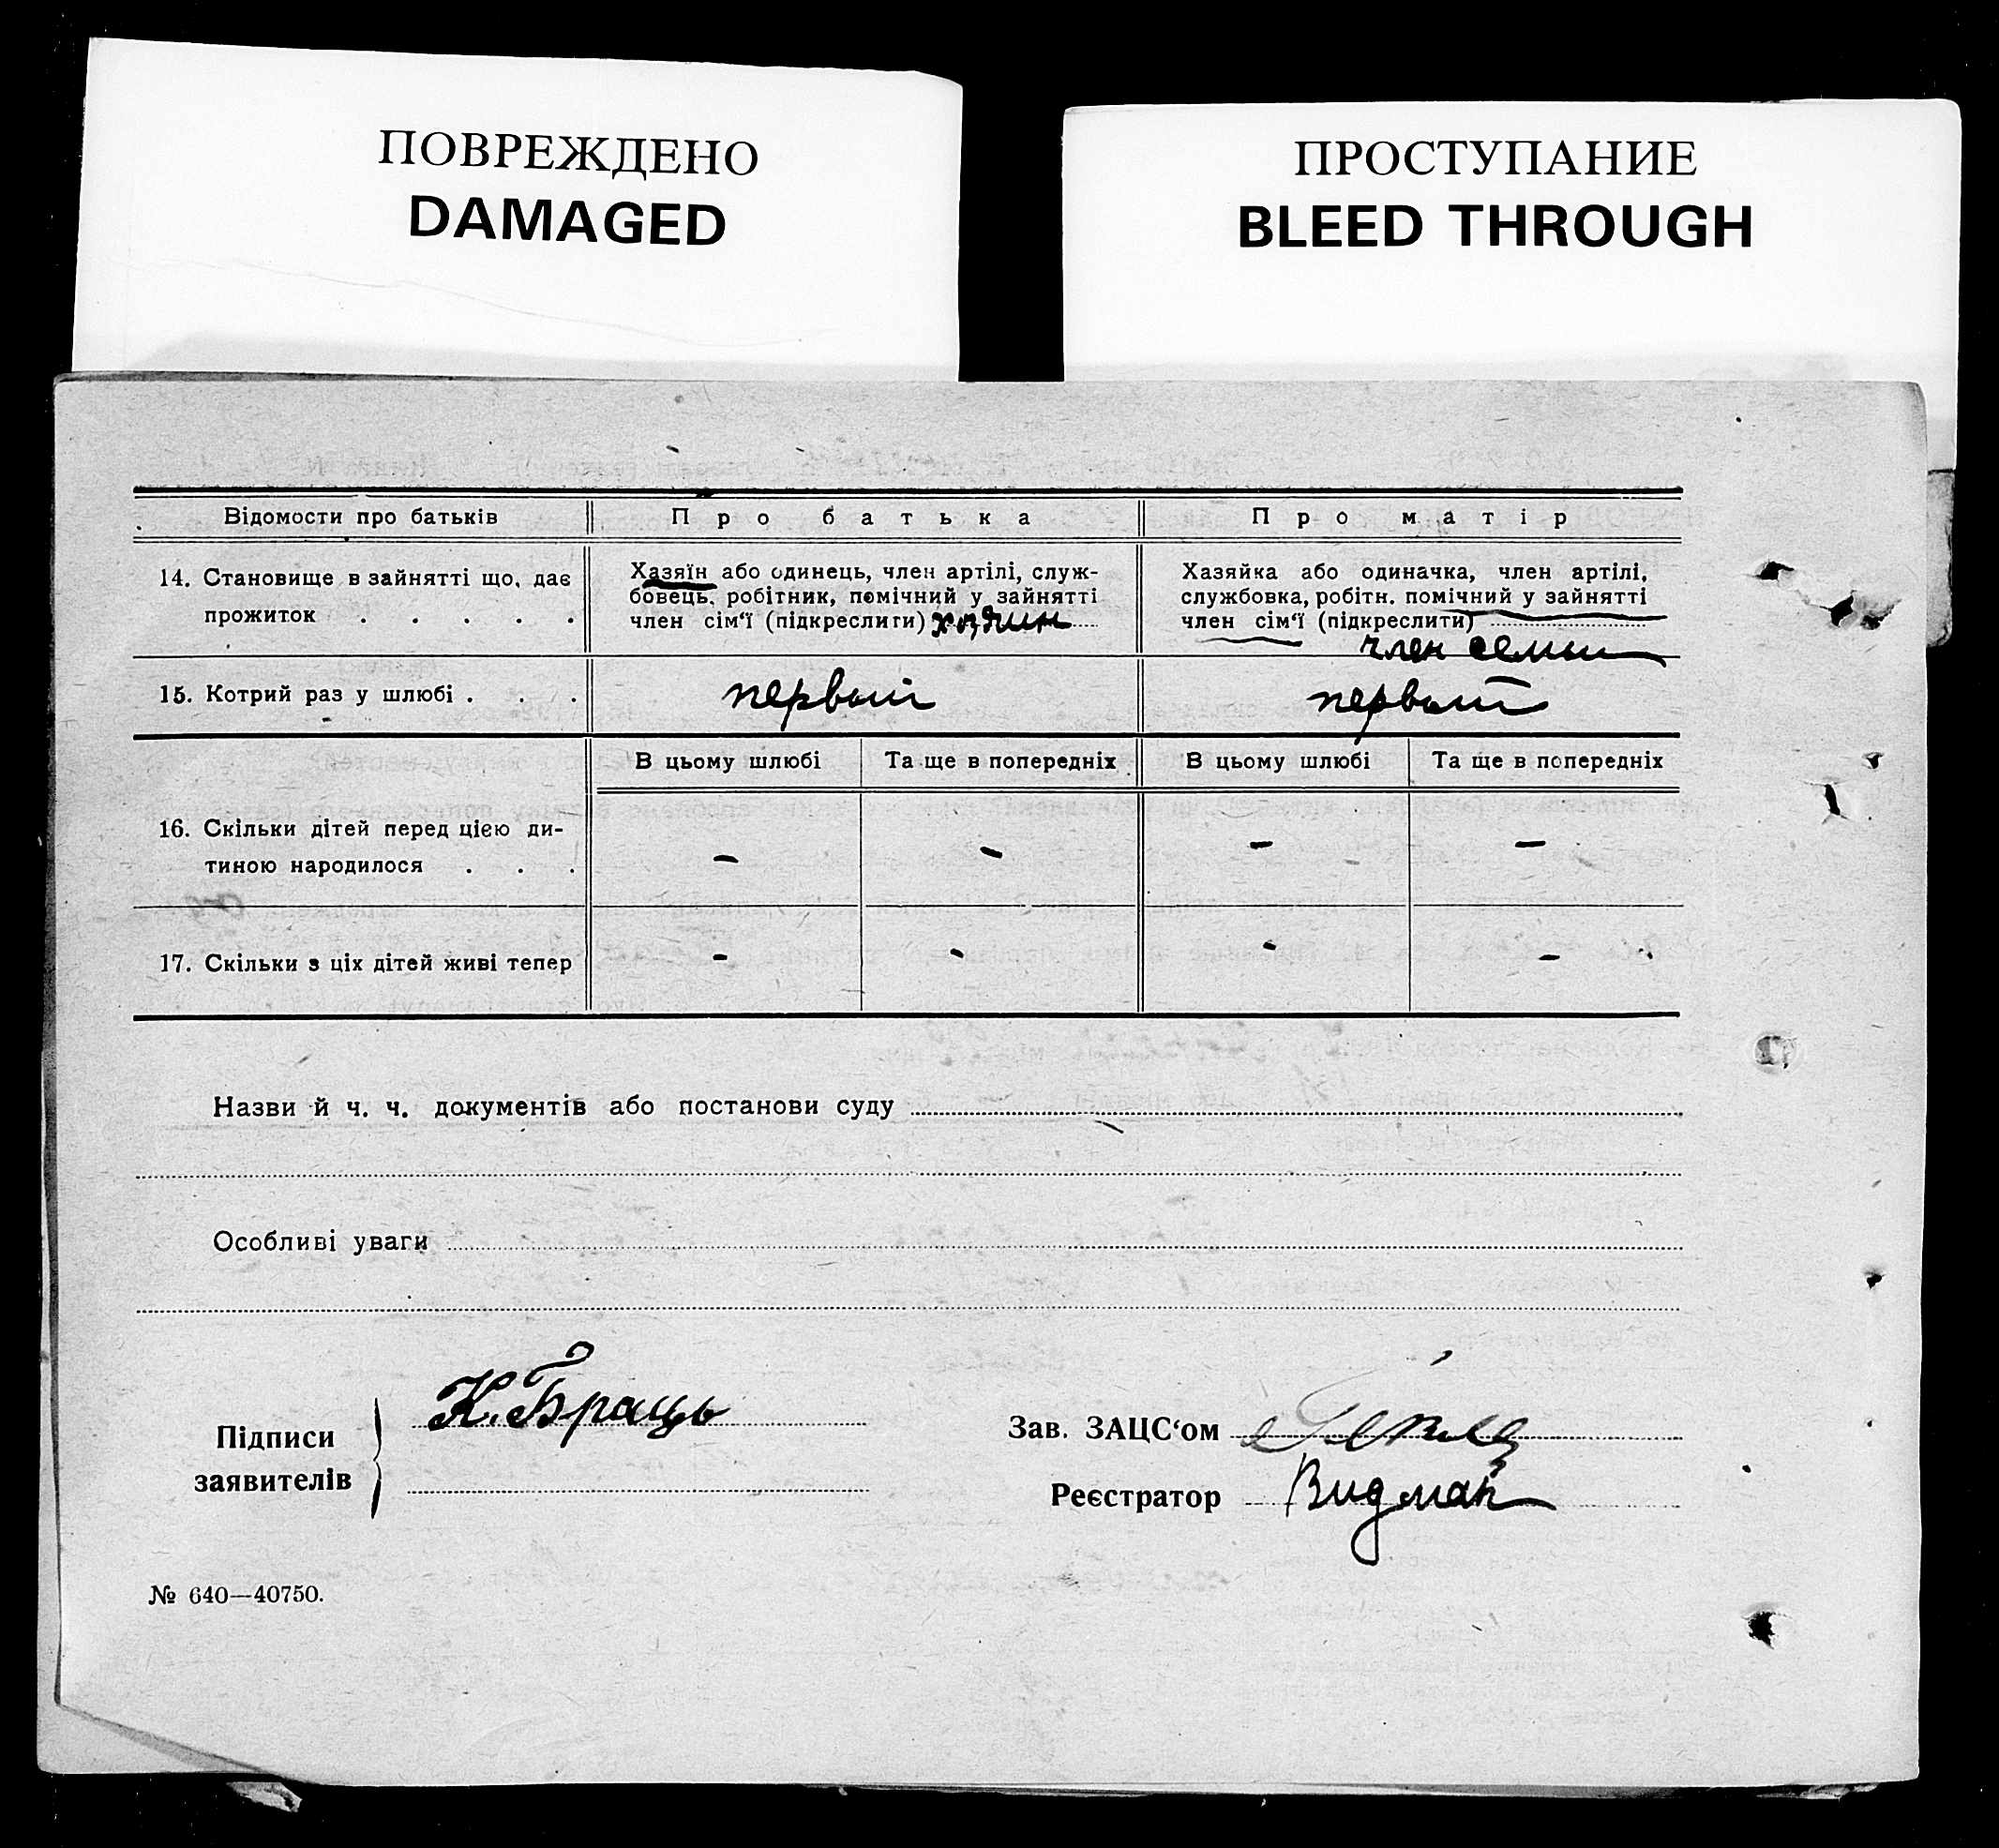 ПОВРЕЖДЕНО
DAMAGED
ПРОСТУПАНИЕ
BLEED THROUGH
Відомости про батьків
Про батька
Про матір
14. Становище в зайнятті що, дає
прожиток . . . . .
Хазяїн або одинець, член артілі, служ-
бовець, робітник, помічний у зайнятті
член сім'ї (підкреслити) хозяин
Хазяйка або одиначка, член артілі,
службовка, робітн. помічний у зайнятті
член сім'ї (підкреслити)
член семьи
15. Котрий раз у шлюбі . . .
первый
первый
В цьому шлюбі
Та ще в попередніх
В цьому шлюбі
Та ще в попередніх
16. Скільки дітей перед цією ди-
тиною народилося . . .
– – – –
17. Скільки з ціх дітей живі тепер
– – – –
Назви й ч. ч. документів або постанови суду
Особливі уваги
Підписи
заявителів
К. Браць
Зав. ЗАЦС'ом
Реєстратор Видман
№ 640—40750.